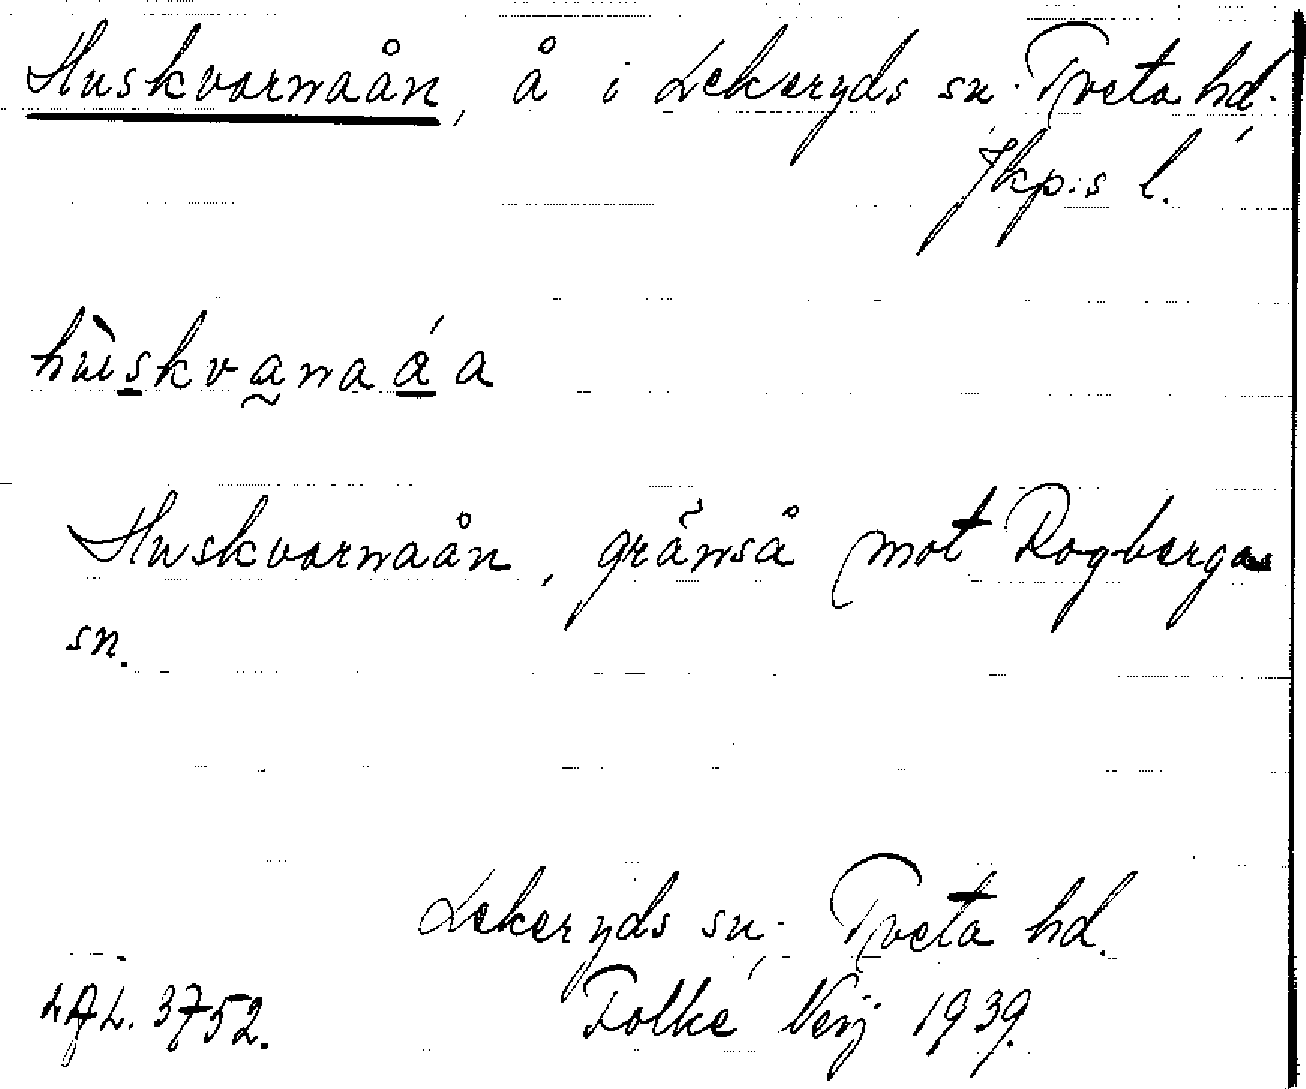 Huskvarnaån, å i Lekeryds sn. Tveta hd.
Jkp:s l.
hùskvanaá a
Huskvarnaån, gränså mot Rogberga
sn.
Lekeryds sn. Tveta hd.
3752. Folke 1939.